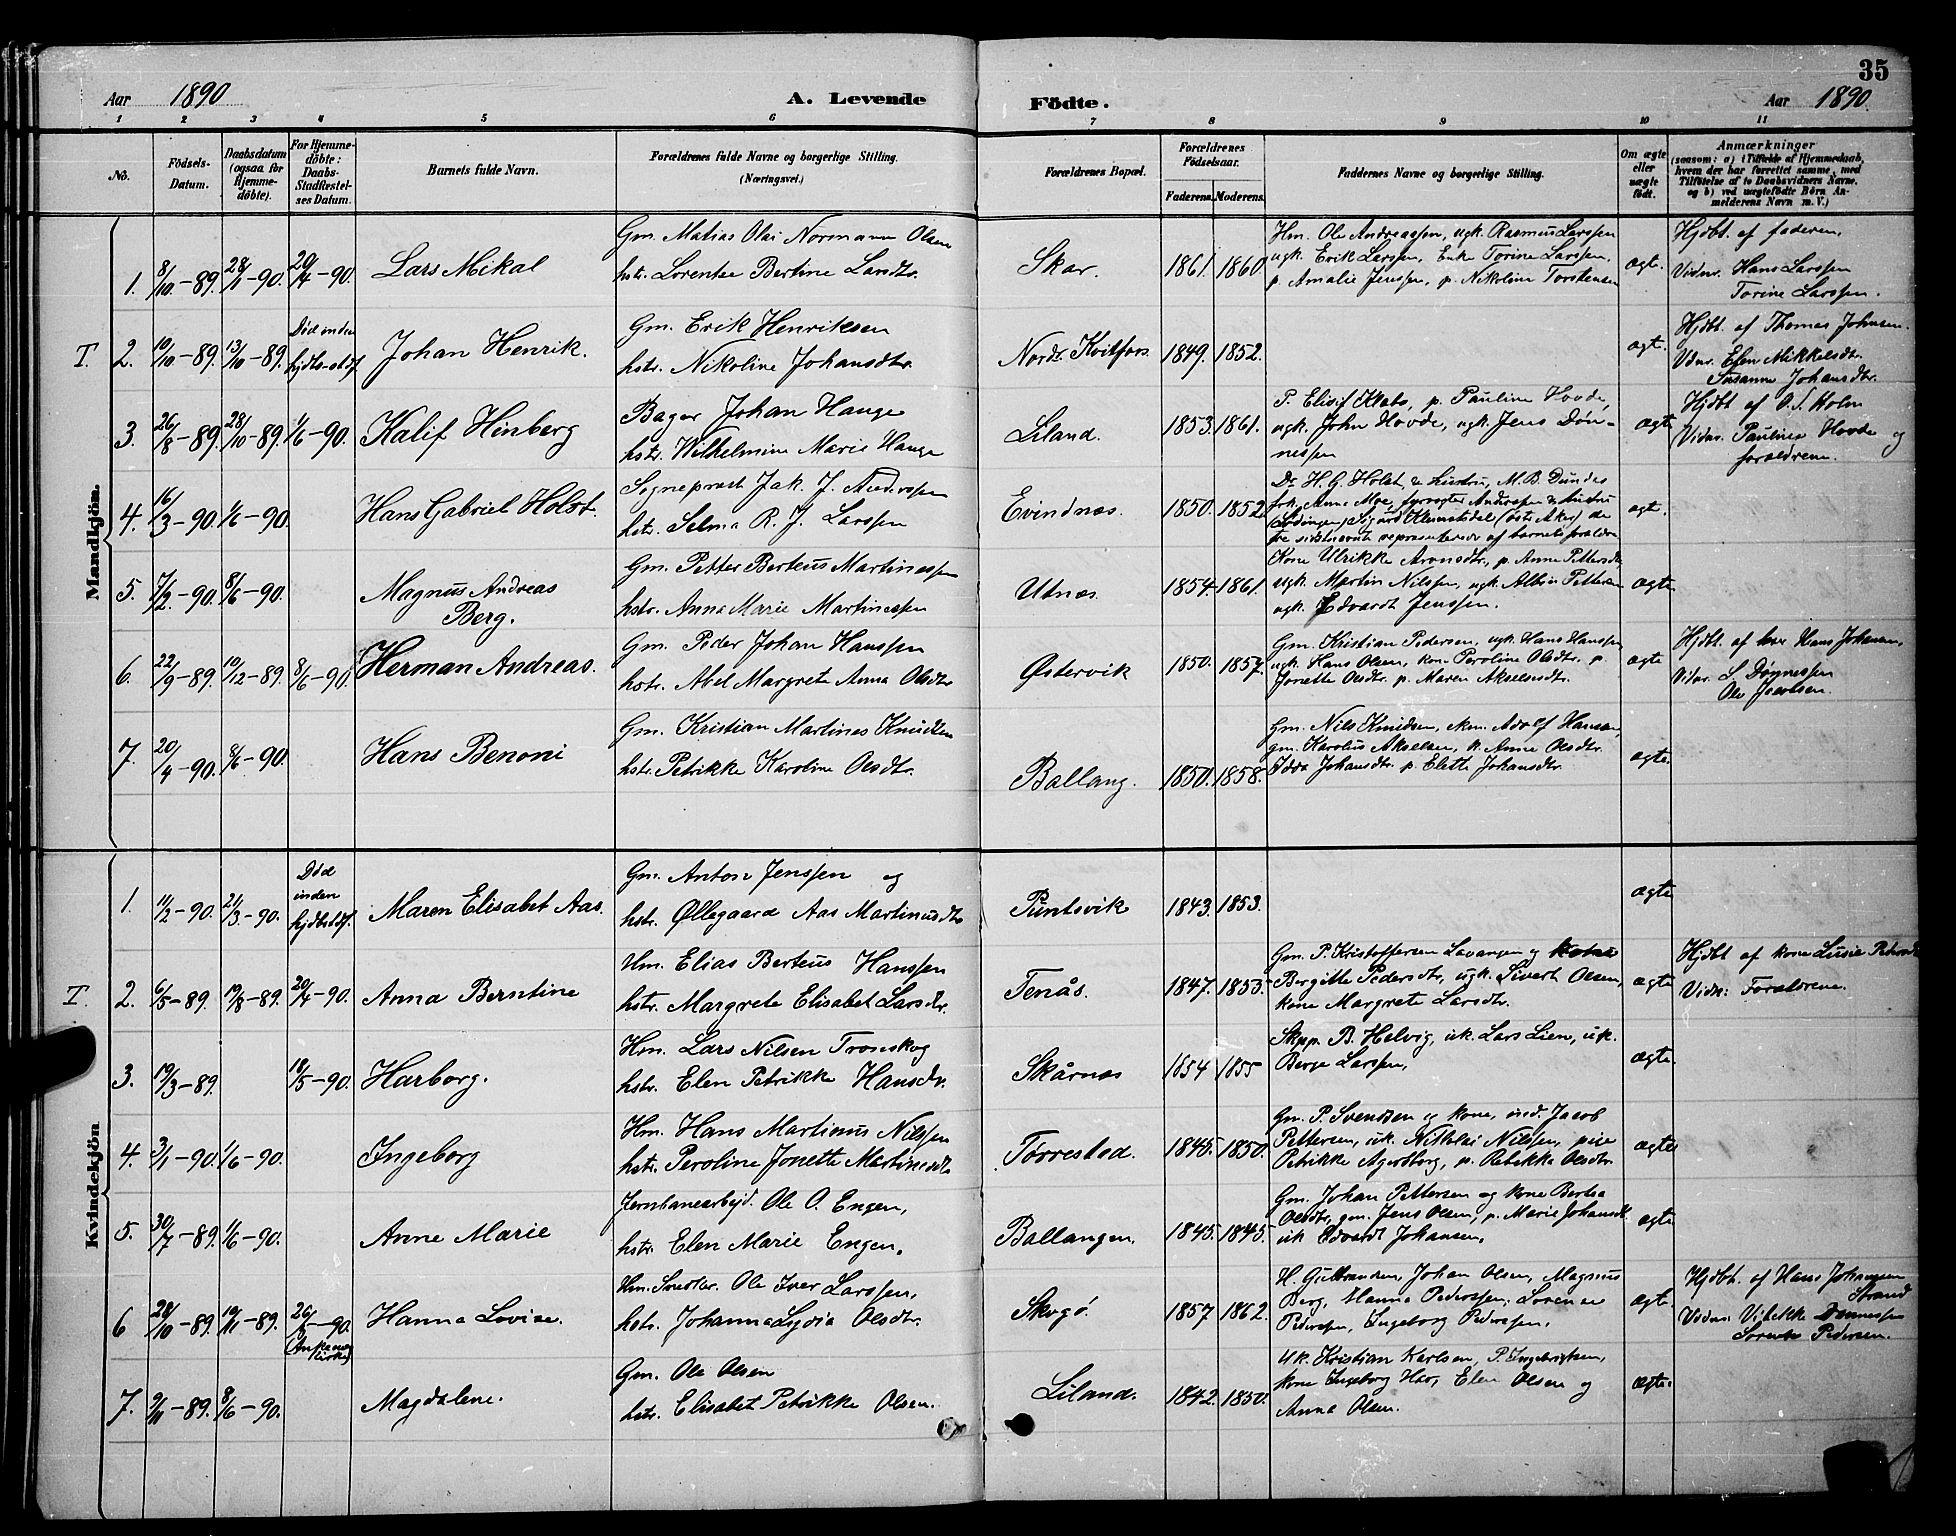 35
Aar 1890 A. Levende Födte. Aar 1890
1 2 3 4 5 6 7 8 9 10 11
No.
Födsels-
Datum.
Daabsdatum
(ogsaa for
Hjemme-
döbte).
For Hjemme-
döbte:
Daabs-
Stadfæstel-
ses Datum.
Barnets fulde Navn.
Forældrenes fulde Navne og borgerlige Stilling.
(Næringsvei.)
Forældrenes Bopæl.
Forældrenes
Födselsaar.
Faderens. Moderens.
Faddernes Navne og borgerlige Stilling.
Om ægte
eller
uægte
födt.
Anmærkninger
(saasom: a) i Tilfælde af Hjemmedaab,
hvem der har forrettet samme, med
Tilföielse af to Daabsvidners Navne,
og b) ved uægtefödte Börn An-
melderens Navn m. V.)
Mandkjön.
1. 8/10-89. 28/1-90. 20/4-90. Lars Mikal
Gm. Matias Olai Normann Olsen
hstr. Lorentse Bertine Larsdtr.
Skar. 1861. 1860
Hm. Ole Andreassen, ugk. Rasmus Larssen
ugk. Erik Larssen, Enke Torine Larssen,
p. Amalie Jenssen, p. Nikoline Torstensen
ægt.
Hjdbt. af faderen,
Vidnr. Hans Larssen
Torine Larssen.
T. 2. 10/10-89. 13/10-89. Død inden
hjdbs-stdf. Johan Henrik.
Gm. Erik Henriksen
hstr. Nikoline Johansdtr.
Nordr. Kvitfors. 1849. 1852.
ægt.
Hjdbt. af Thomas Johnsen.
Vdnr. Elen Mikkelsdtr.
Susanne Johansdtr.
3. 26/8-89. 28/10-89. 1/6-90. Kalif Hinberg
Bager Johan Hauge
hstr. Wilhelmine Marie Hauge
Liland. 1853. 1861.
p. Pauline Hovde,
ugk. John Hovde, ugk. Jens Døn-
nessen
ægt.
Hjdbt af O. S. Holm
Vidnr. Pauline Hovde og
forældrene.
4. 16/3-90. 1/6-90. Hans Gabriel Holst.
Sogneprest Jak. J. Anderssen
hstr. Selma R. J. Larssen
Evindnæs. 1850. 1852
Dr. H. G. Holst & hustru, M. B. Dundas
frk. Anna Moe, fyrvogter Anderssen & hustru
(Lødingen) (østr. Aker) de
tre sidstnævnte representerede af barnets forældre
ægt.
5. 7/2-90. 8/6-90. Magnus Andreas
Berg.
Gm. Petter Berteus Martinessen
hstr. Anna Marie Martinessen
Utnæs. 1854. 1861.
Kone Ulrikke Aronsdtr, p. Anne Pettersdtr,
ugk. Martin Nilssen, ugk. Albin Pettersen
ugk. Edvardt Jenssen.
ægte
6. 22/9-89. 10/12-89. 8/6-90. Herman Andreas.
Gm. Peder Johan Hanssen
hstr. Abel Margrete Anna Olsdtr
Østervik 1850. 1857.
Gm. Kristian Pedersen, ugk. Hans Hanssen
ugk. Hans Olsen, kone Peroline Olsdtr. p.
Jonette Olsdtr. p. Maren Akselsendtr.
ægte
Hjdbt. af Hans Johansen,
Vidnr. L Dønnessen
Ole Jacobsen.
7. 20/4-90. 8/6-90. Hans Benoni
Gm. Kristian Martines Knudsen
hstr. Petrikke Karoline Olsdtr.
Ballang. 1850. 1858.
Gm. Nils Knudsen, Adolf Hansen,
gm. Karolus Akselsen, k. Anne Olsdtr.
Idda Johansdtr. p. Elette Johansdtr.
ægte.
Kvindekjön
1. 11/2-90. 21/3-90. Død
inden
hjdbstdf. Maren Elisabet Aas.
Gm. Anton Jenssen og
hstr. Øllegaard Aas Martinusdtr
Puntsvik 1843. 1853.
ægte
T. 2. 6/5-89. 19/8-89. 20/4-90. Anna Berntine
Hm. Elias Berteus Hanssen
hstr. Margrete Elisabet Larsdtr.
Tenås. 1847. 1853.
Gm. P. Kristoffersen Lavangen og kone
Bergitte Pedersdtr, ugk. Sivert Olsen,
kone Margrete Larsdtr.
ægte
Hjdbt af kone Lusie
Vidn: Forældrene.
3. 19/3-89. 18/5-90. Harborg.
Hm. Lars Nilsen Tronskog
hstr. Elen Petrikke Hansdr.
Skårnæs 1854 1855
B. Helvig, uk. Lars Lien, uk.
Berge Larssen,
ægte.
4. 3/1-90. 1/6-90. Ingeborg
Hm. Hans Martinus Nilssen
hstr. Peroline Jonette Martinusdtr
Tørrestad. 1845. 1850.
Gm. P. Svendsen og kone, ind. Jacob
Pettersen, uk. Nikolai Nilssen, pige
Petrikke p. Rebekka Olsdtr.
ægte
5. 30/7-89. 1/6-90. Anne Marie
Jernbanearbejd. Ole O. Engen,
hstr. Elen Marie Engen.
Ballangen. 1845. 1845.
Gm. Johan Pettersen og kone Bertea
Olsdtr, gm. Jens Olsen, p. Marie Johansdr.
uk Edvardt Johansen,
ægte
6 28/10-89. 10/11-89. 26/5-90.
(Ankenes
kirke) Hanna Lovise.
Hm. Snedker. Ole Iver Larssen,
hstr. Johanna Lydia Olsdtr.
Skogø. 1857 1862.
H. Gulbrandsen, Johan Olsen, Magnus
Berg, Hanna Pederssen, Lorense
Pederssen, Ingeborg Pederssen.
ægte.
Hjdbt. af Hans Johansen
Strand
Vidnr. Vibekke Dønnessen
Lorents Pedersen.
7. 9/11-89. 8/6-90. Magdalene.
Gm. Ole Olsen
hstr. Elisabet Petrikke Olsen.
Liland. 1842. 1850.
Uk. Kristian Karlsen, P. Ingebrigtsen,
kone Ingeborg Elen Olsen og
Anna Olsen.
ægte.